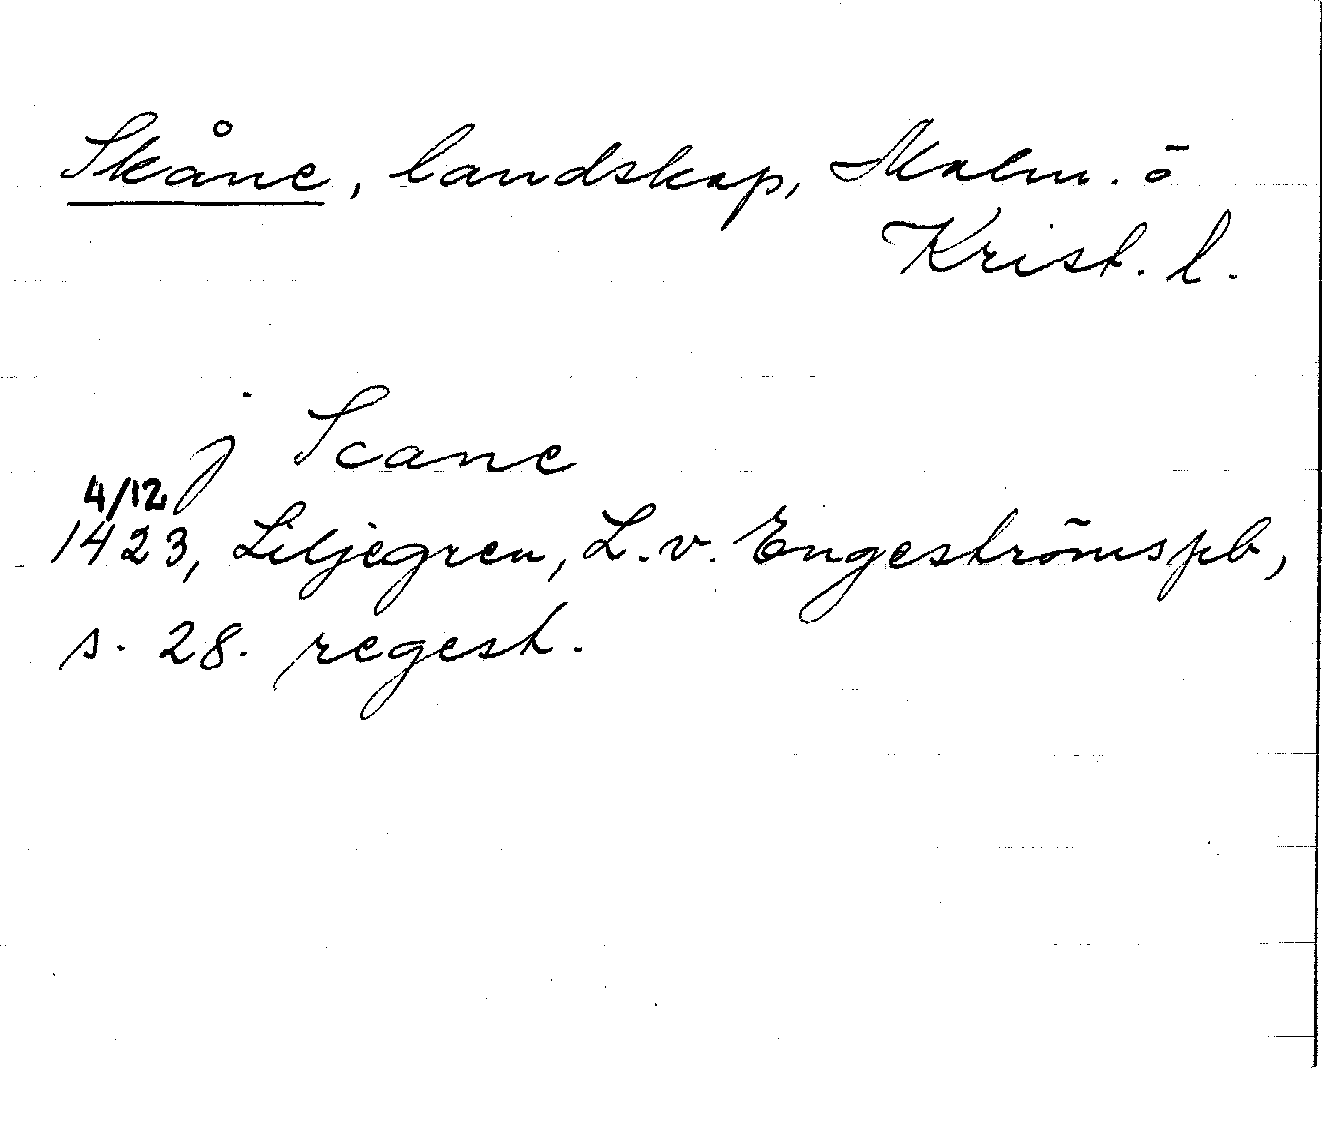 Skåne, landskap, Malm. ō
Krist. l.
j Scane
4/12
1423, Liljegren, L. v. Engeströms pb,
s. 28. regest.